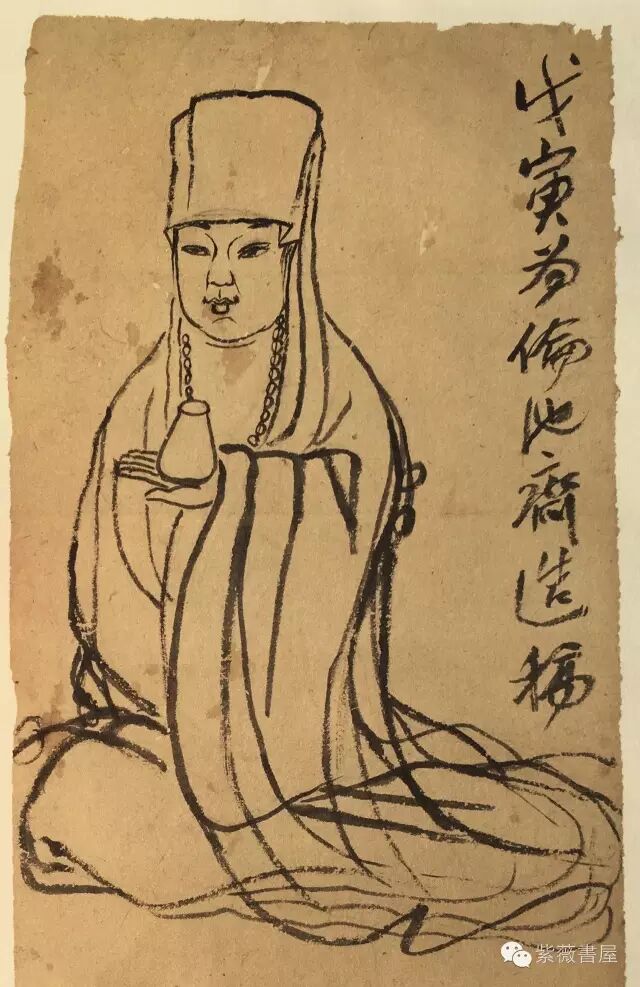 戊寅为倫池齋造稿
紫薇書屋